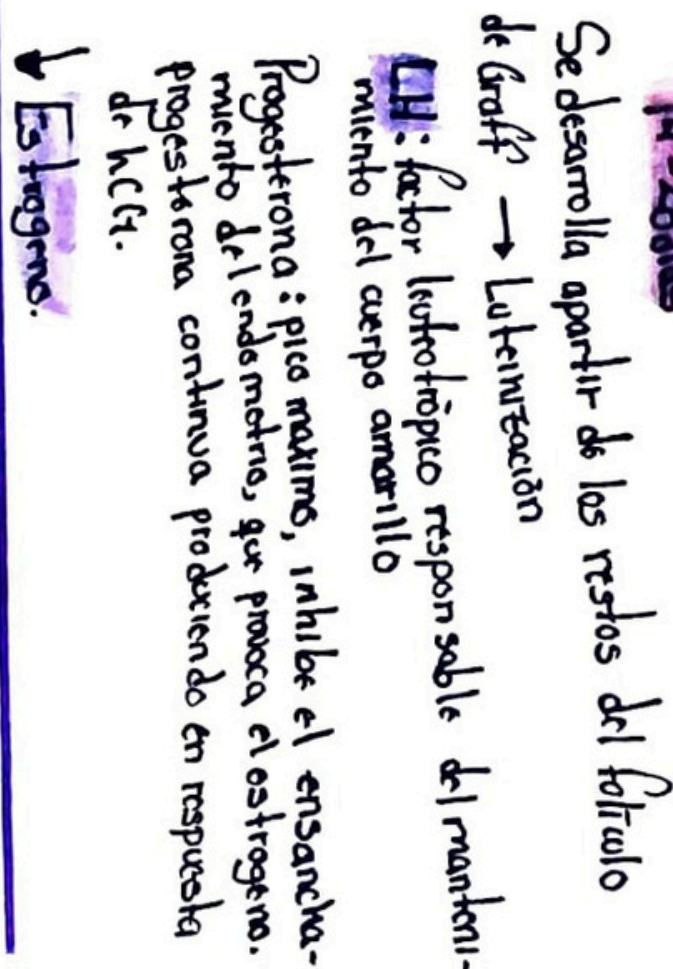 Se desarrolla apartir de los restos del folículo
de Graff → Luteinización
LH: factor leuteotrópico responsable del manteni-
miento del cuerpo amarillo
Progesterona: pico maximo, inhibe el ensancha-
miento del endometrio, que provoca el estrogeno.
progesterona continua produciendo en respuesta
de hCG.
↓ Estrogeno.